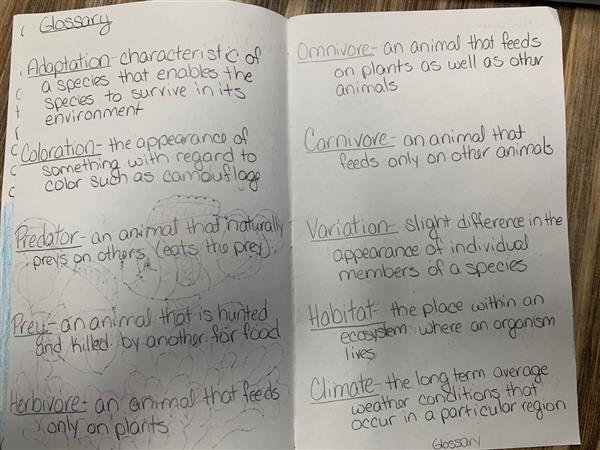 Glossary
Adaptation- characteristic of
a species that enables the
species to survive in its
environment
Coloration- the appearance of
something with regard to
color such as camouflage
Predator- an animal that naturally
preys on others (eats the prey).
Prey- an animal that is hunted
and killed by another for food
Herbivore- an animal that feeds
only on plants
Omnivore- an animal that feeds
on plants as well as other
animals
Carnivore- an animal that
feeds only on other animals
Variation- slight difference in the
appearance of individual
members of a species
Habitat- the place within an
ecosystem where an organism
lives
Climate- the long term average
weather conditions that
occur in a particular region
Glossary